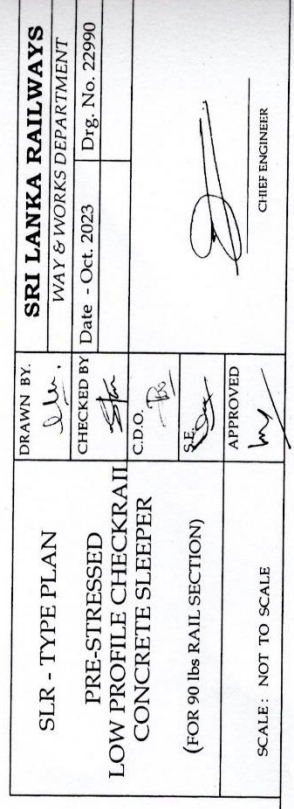 SLR - TYPE PLAN
PRE-STRESSED
LOW PROFILE CHECKRAIL
CONCRETE SLEEPER
(FOR 90 lbs RAIL SECTION)
SCALE : NOT TO SCALE
DRAWN BY.
CHECKED BY
C.D.O.
S.E.
APPROVED
SRI LANKA RAILWAYS
WAY & WORKS DEPARTMENT
Date - Oct. 2023
Drg. No. 22990
CHIEF ENGINEER